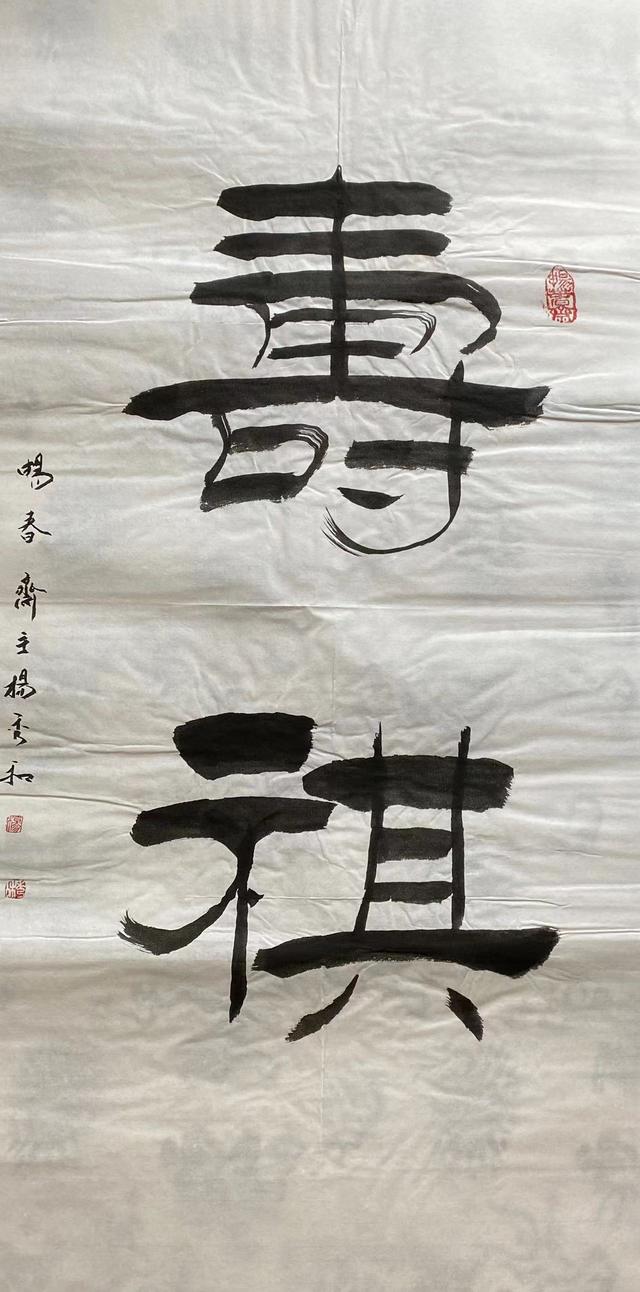 壽祺
暢春齋主楊秀和